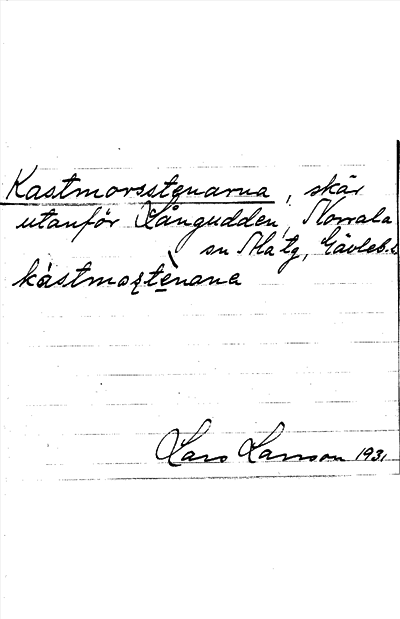 Kastmorsstenarna, skär
utanför Långudden, Norrala
sn Ala tg, Gävleb. l
kástmoṣtènana
Lars Larsson 1931